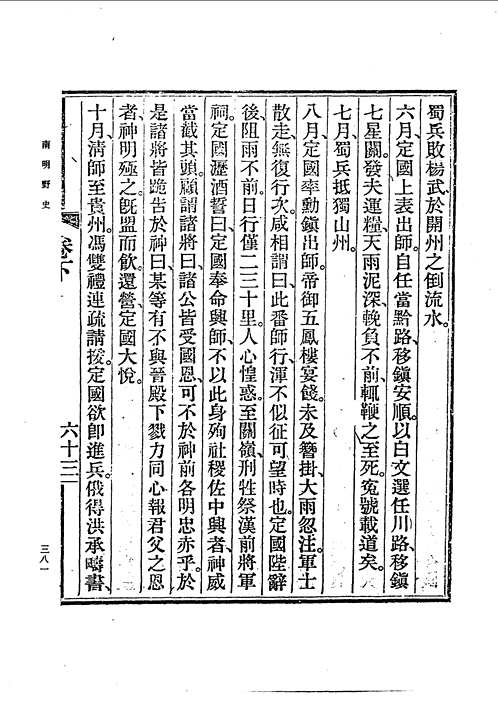 蜀兵敗楊武於開州之倒流水。
六月、定國上表出師。自任當黔路、移鎭安順。以白文選任川路、移鎭
七星關。發夫運糧、天雨泥深、輓負不前、輒鞭之至死。冤號載道矣。
七月、蜀兵抵獨山州。
八月、定國率勳鎭出師。帝御五鳳樓宴餞。未及簪掛、大雨忽注。軍士
散走、無復行次。咸相謂曰、此番師行、渾不似征可望時也。定國陛辭
後、阻雨不前。日行僅二三十里。人心惶惑。至關嶺、刑牲祭漢前將軍
祠。定國瀝酒誓曰、定國奉命興師、不以此身殉社稷佐中興者、神威
當截其頭。顧謂諸將曰、諸公皆受國恩、可不於神前各明忠赤乎。於
是諸將皆跪告於神曰、某等有不與晉殿下戮力同心報君父之恩
者、神明殛之。旣盟而飮。還營。定國大悅。
十月、淸師至貴州。馮雙禮連疏請援。定國欲卽進兵。俄得洪承疇書、
南明野史
卷下
六十三
三八一